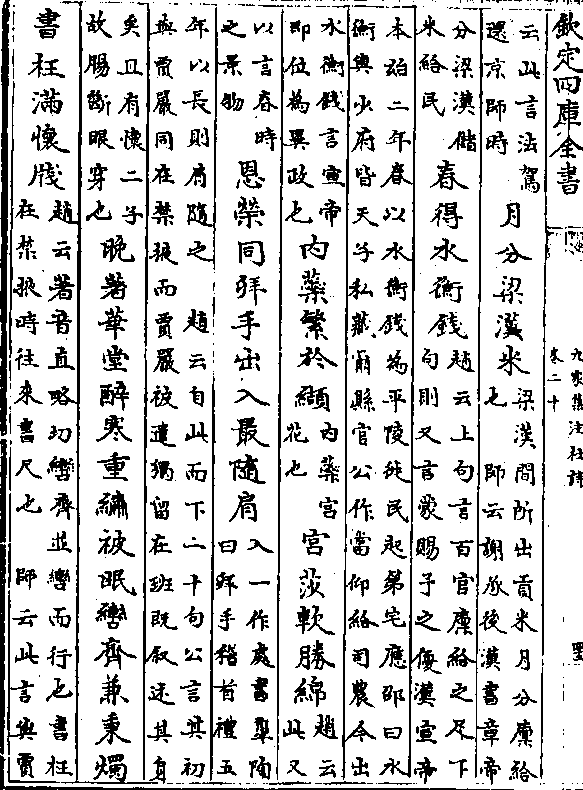 欽定四庫全書
九家集注杜詩
卷二十
云此言法駕
還京師時
月分梁漢米
梁漢間所出貢米月分廩給
也　師云謝承後漢書章帝
分梁漢儲
米給民
春得水衡錢
趙云上句言百官廩給之足下
句則又言蒙賜予之優漢宣帝
本始二年春以水衡錢為平陵徙民起第宅應邵曰水
衡與少府皆天子私藏爾縣官公作當仰給司農今出
水衡錢言宣帝
即位為異政也
内蘂繁於纈
内蘂宮
花也
宮莎軟勝綿
趙云
此又
以言春時
之景物
恩榮同拜手出入最隨肩
入一作處書臯陶
曰拜手稽首禮五
年以長則肩隨之　趙云自此而下二十句公言其初
與賈嚴同在禁掖而賈嚴被遣獨留在班既叙述其身
矣且有懷二子
故腸斷眼穿也
晚著華堂醉寒重繡被眠轡齊兼秉燭
書枉滿懷牋
趙云著音直略切轡齊並轡而行也書枉
在禁掖時往來書尺也　師云此言與賈